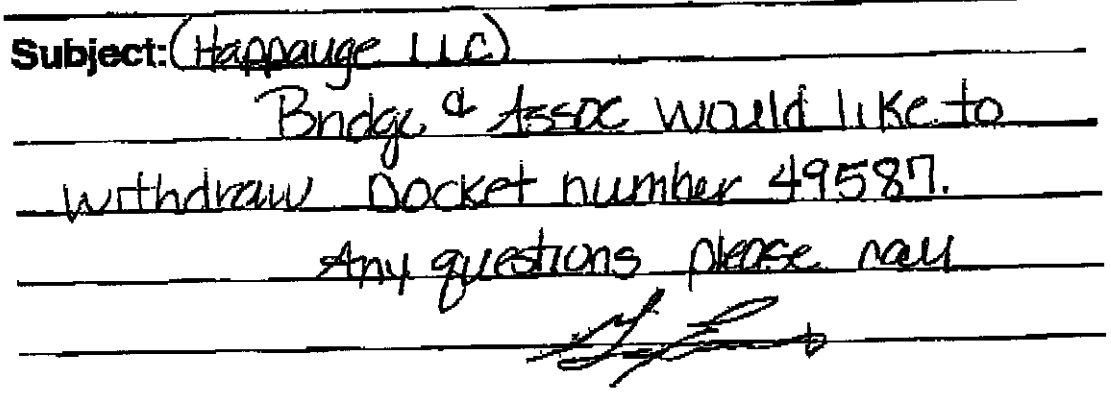 Subject: (Happauge LLC)
Bridge & Assoc would like to
withdraw Docket number 49587.
Any questions please call